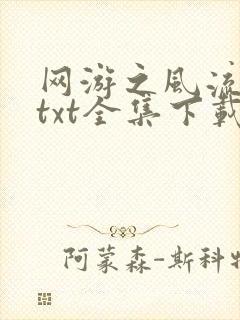 网游之风流
txt全集下载
阿蒙森-斯科特